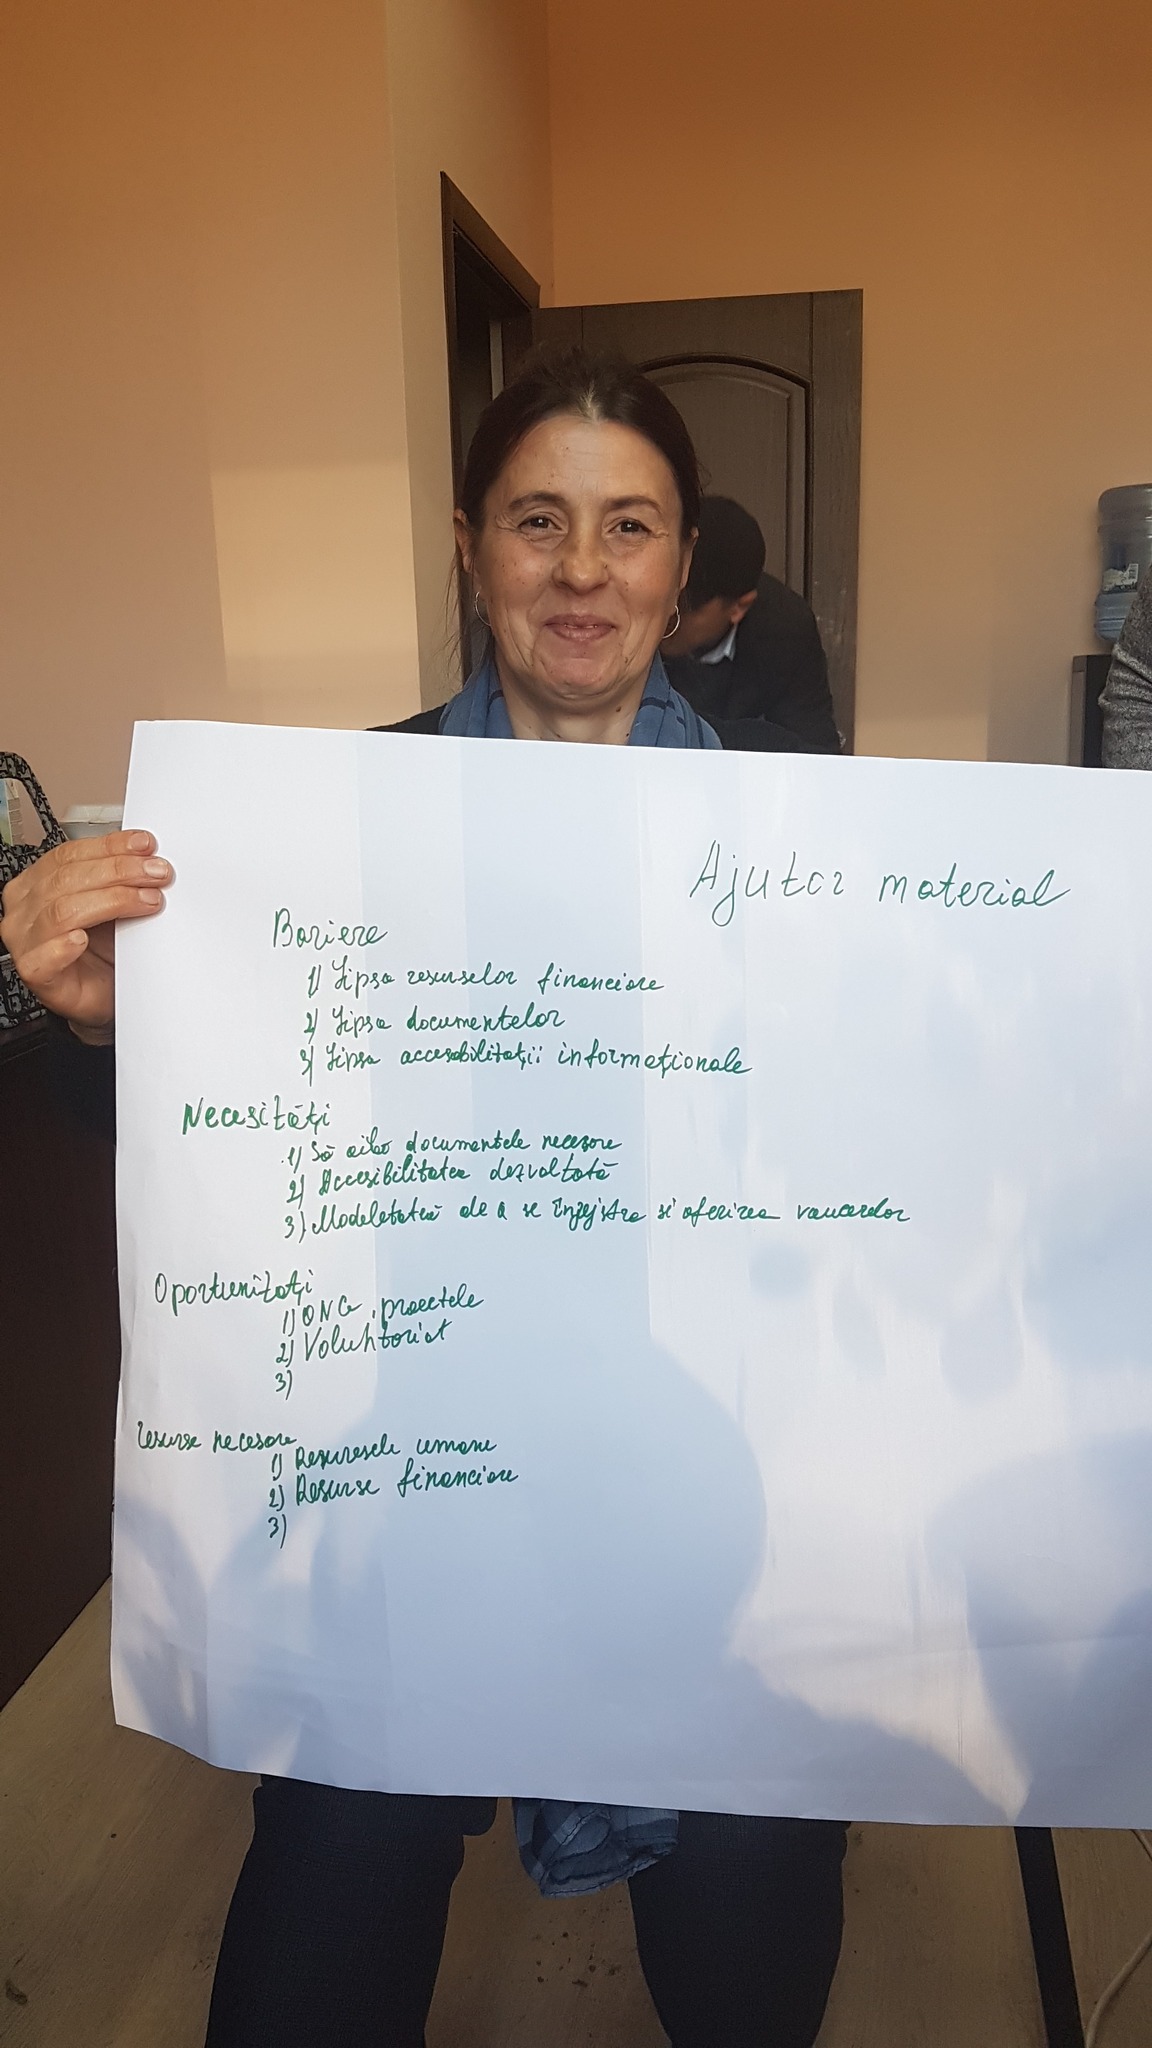 Ajutor material
Bariere
1) Lipsa resurselor financiare
2) Lipsa documentelor
3) Lipsa accesabilitații informaționale
Necesități
1) Să aibă documentele necesare
2) Accesibilitatea dezvoltată
3) Modeletatea de a se înrejistra si oferirea vaucerelor
Oportunitați
1) ONG, proectele
2) Voluntariat
3)
resurse necesare
1) Resursele umane
2) Resurse financiare
3)